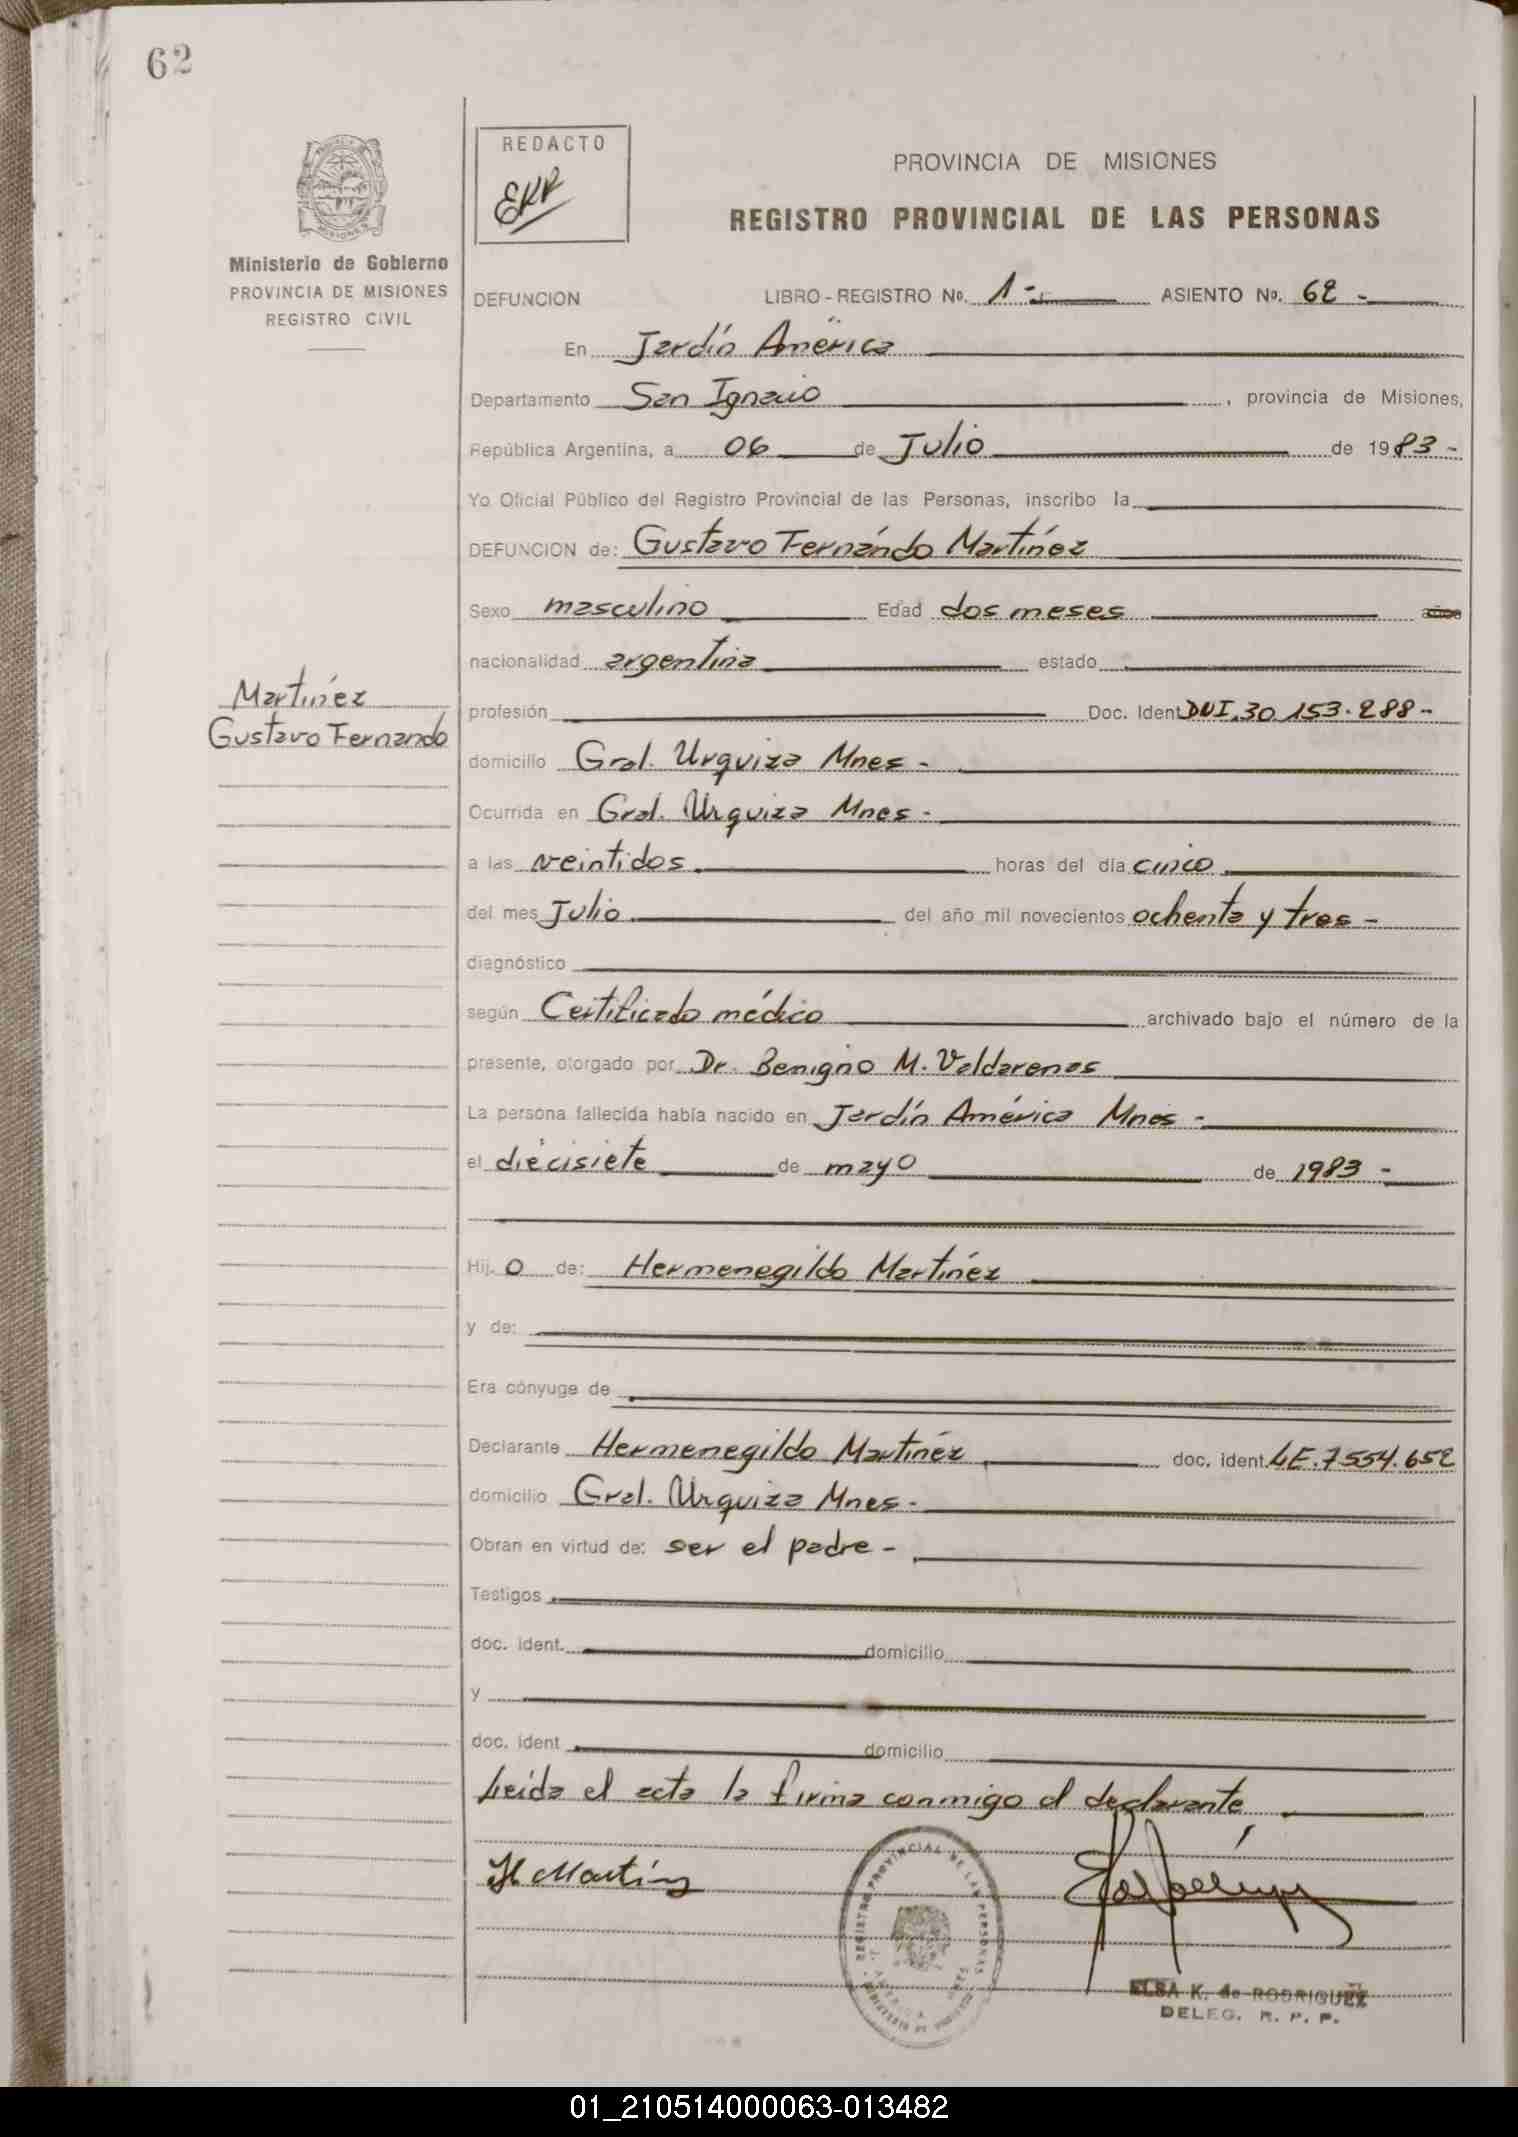 62
REDACTO
EKR
PROVINCIA DE MISIONES
REGISTRO PROVINCIAL DE LAS PERSONAS
Ministerio de Gobierno
PROVINCIA DE MISIONES
REGISTRO CIVIL
DEFUNCION LIBRO - REGISTRO No. 1 - ASIENTO No. 62 -
En Jardín América
Departamento San Ignacio, provincia de Misiones,
República Argentina, a 06 de Julio de 1983 -
Yo Oficial Público del Registro Provincial de las Personas, inscribo la
DEFUNCION de: Gustavo Fernándo Martínez
Sexo masculino Edad dos meses
nacionalidad argentina estado
Martínez
Gustavo Fernando
profesión Doc. Ident. DNI. 30.153.288 -
domicilio Gral. Urquiza Mnes -
Ocurrida en Gral. Urquiza Mnes -
a las veintidos horas del día cinco
del mes Julio del año mil novecientos ochenta y tres -
diagnóstico
según Certificado médico archivado bajo el número de la
presente, otorgado por Dr. Benigno M. Valdarenas
La persona fallecida había nacido en Jardín América Mnes -
el diecisiete de mayo de 1983 -
Hij o de: Hermenegildo Martínez
y de:
Era cónyuge de
Declarante Hermenegildo Martínez doc. ident. LE. 7554.652
domicilio Gral. Urquiza Mnes -
Obran en virtud de: ser el padre -
Testigos
doc. ident. domicilio
y
doc. ident domicilio
Leída el acta la firma conmigo el declarante
H Martínez
REGISTRO PROVINCIAL DE LAS PERSONAS
ELSA K. de RODRIGUEZ
DELEG. R. P. P.
01_210514000063-013482